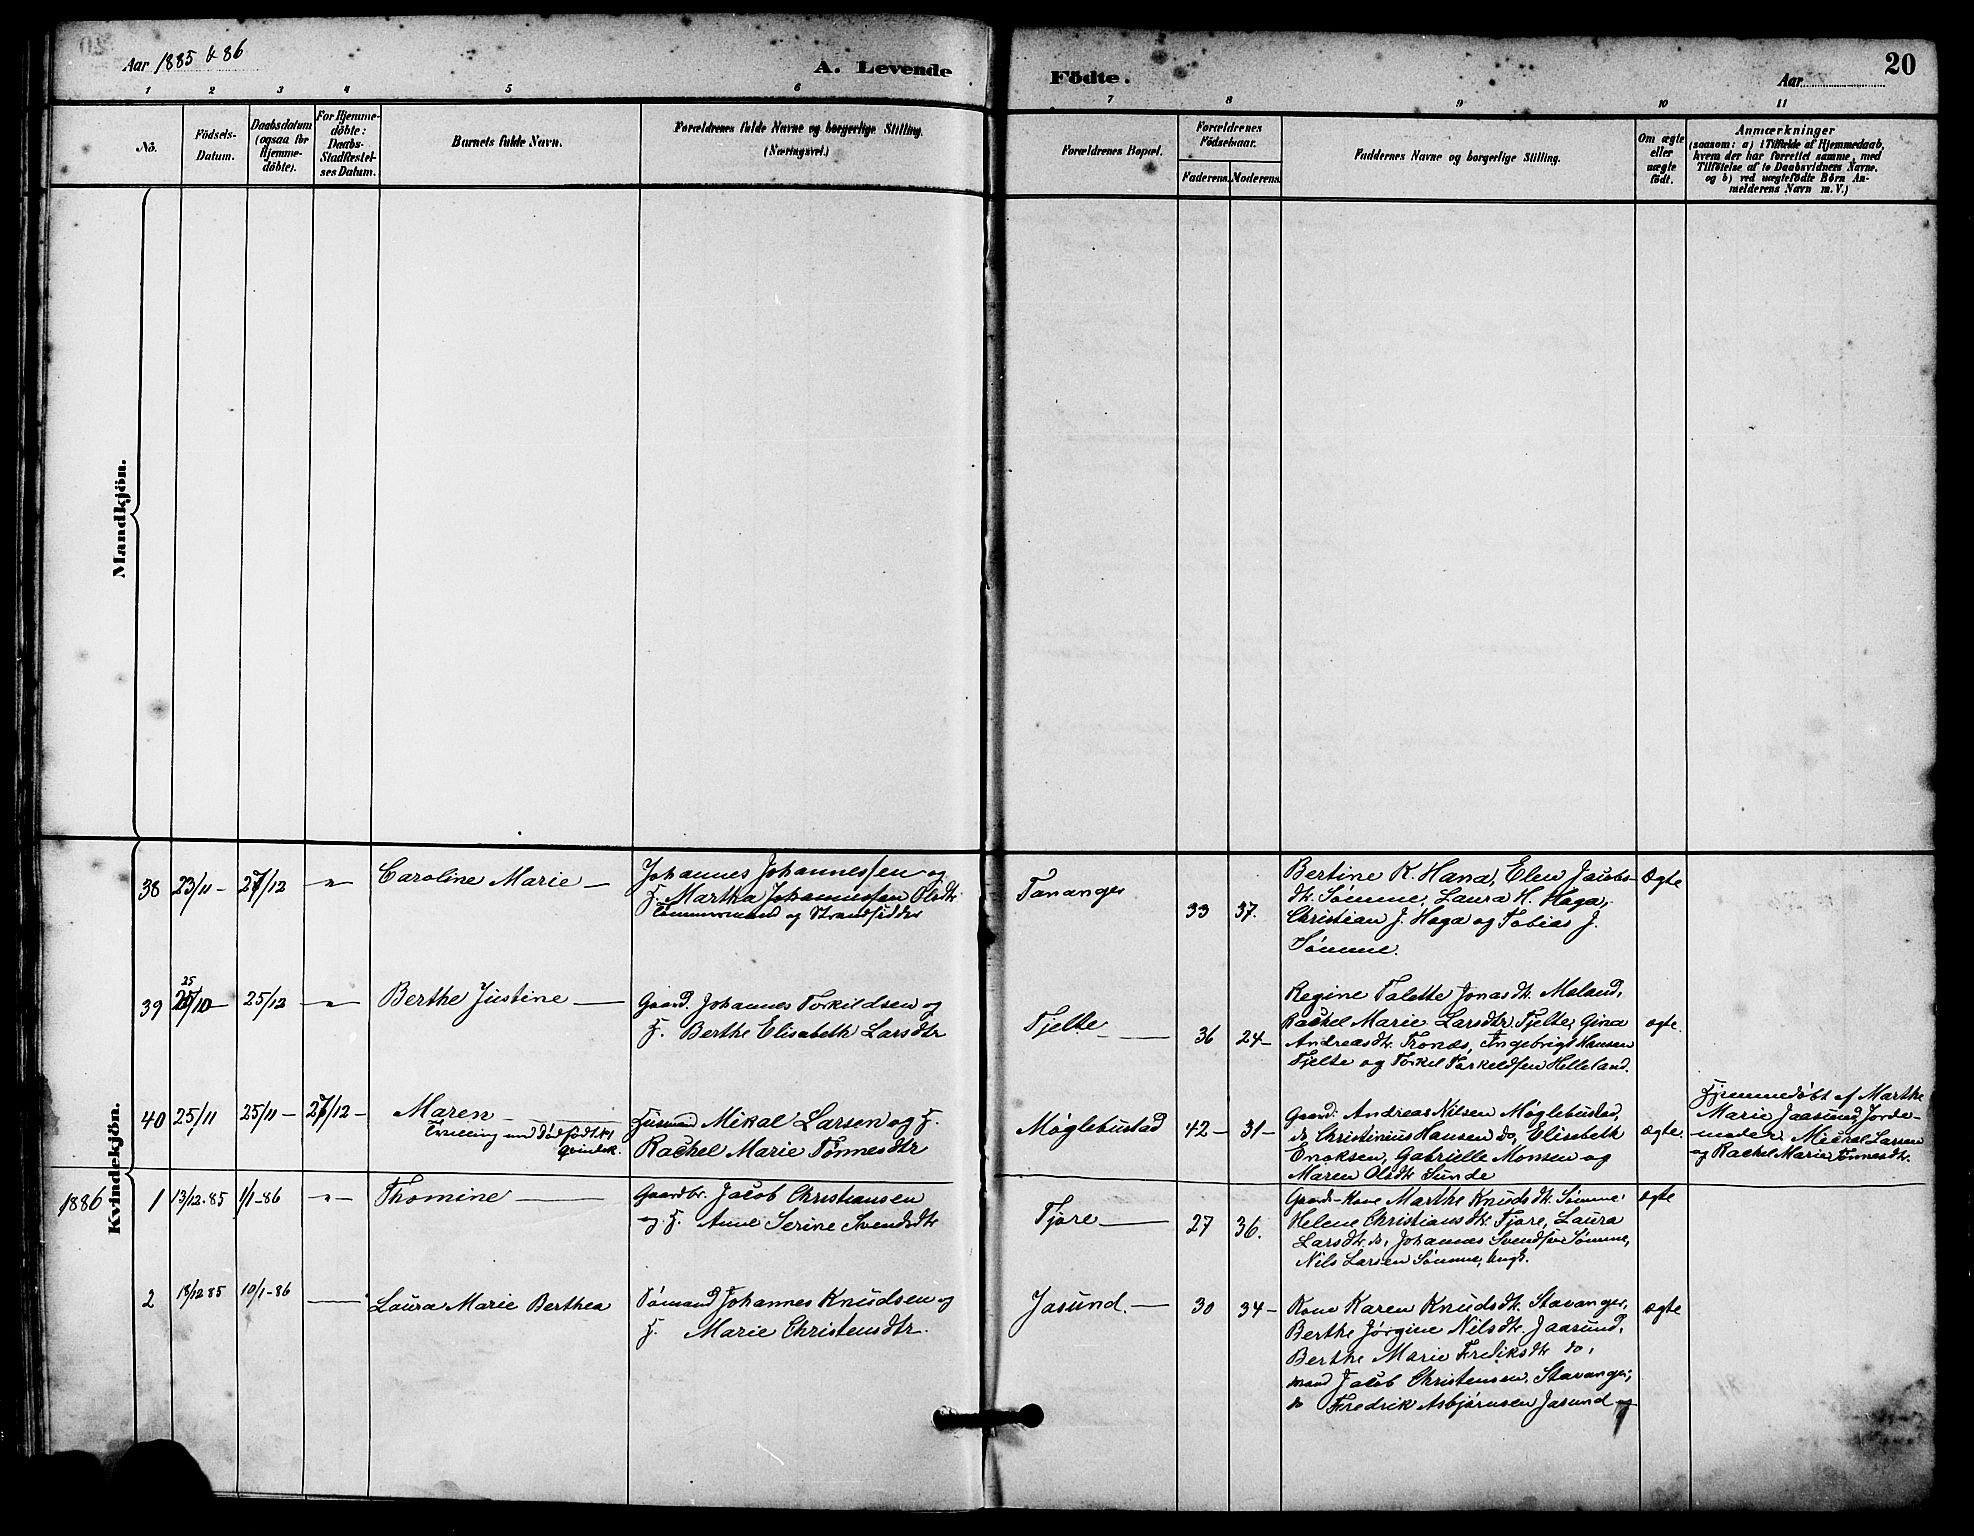 Aar 1885 & 86
A. Levende
Födte.
Aar
20
1 2 3 4 5 6 7 8 9 10 11
Nö.
Födsels-
Datum.
Daabsdatum
(ogsaa for
Hjemme-
döbte).
For Hjemme-
döbte:
Daabs-
Stadfæstel-
ses Datum.
Barnets fulde Navn.
Forældrenes fulde Navne og borgerlige Stilling.
(Næringsvei.)
Forældrenes Bopæl.
Forældrenes
Födselsaar.
Faderens.
Moderens.
Faddernes Navne og borgerlige Stilling.
Om ægte
eller
uægte
födt.
Anmærkninger
(saasom: a) i Tilfælde af Hjemmedaab,
hvem der har forrettet samme, med
Tilföielse af to Daabsvidners Navne,
og b) ved uægtefödte Börn An-
melderens Navn m. V.)
Mandkjön.
Kvindekjön.
38 23/11 - 27/12 -"- Caroline Marie —
Johannes Johannessen og
H. Martha Johannessen Olsdtr
Tømmermand og Strandsidder
Tananger
33 37.
Bertine K. Hana, Elen Jacobs-
dtr. Sømme, Laura H. Haga,
Christian J. Haga og Tobias J.
Sømme.
Ægte
39 25/10 - 25/12 -"- Berthe Justine —
25
Gaard. Johannes Torkildsen og
H. Berthe Elisabeth Larsdtr
Tjelte —
36 24 -
Regine Talette Jonasdtr. Meland,
Rachel Marie Larsdtr. Tjelte, Gina
Andreasdtr. Tronæs, Ingebrigt Hansen
Tjelte og Torkel Torkeldsen Helleland.
ægte.
40 25/11 25/11 - 27/12 - Maren —
Tvilling med Dødfødt No 1
Qvindek.
Husmand Mikal Larsen og H.
Rachel Marie Tønnesdtr
Møglebustad
42 - 31 -
Gaard: Andreas Nilsen Møglebustad,
do Christinius Hansen do, Elisabeth
Enoksen, Gabrielle Monsen og
Maren Olsdtr Sunde
ægte.
Hjemmedøbt af Marthe
Marie Jaasund Jorde-
moder. Michal Larsen
og Rachel Marie Tønnesdtr.
1886 1 13/12-85 1/1-86 -"- Thomine —
Gaardbr. Jacob Christiansen
og H. Anne Serine Svendsdtr
Tjore —
27 36.
Gaards-Kone Marthe Knudsdtr. Sømme,
Helene Christiansdtr. Tjore, Laura
Larsdtr. do, Johannes Svendsen Sømme,
Nils Larsen Sømme, Ungk.
ægte
2 18/12 85 10/1-86 — Laura Marie Berthea
Sømand Johannes Knudsen og
H. Marie Christensdtr.
Jasund. —
30 34 -
Kone Karen Knudsdtr. Stavanger,
Berthe Jørgine Nilsdtr. Jaasund,
Berthe Marie Frediksdtr do,
Jacob Christensen, Stavanger,
do Fredrik Asbjørnsen Jasund
ægte